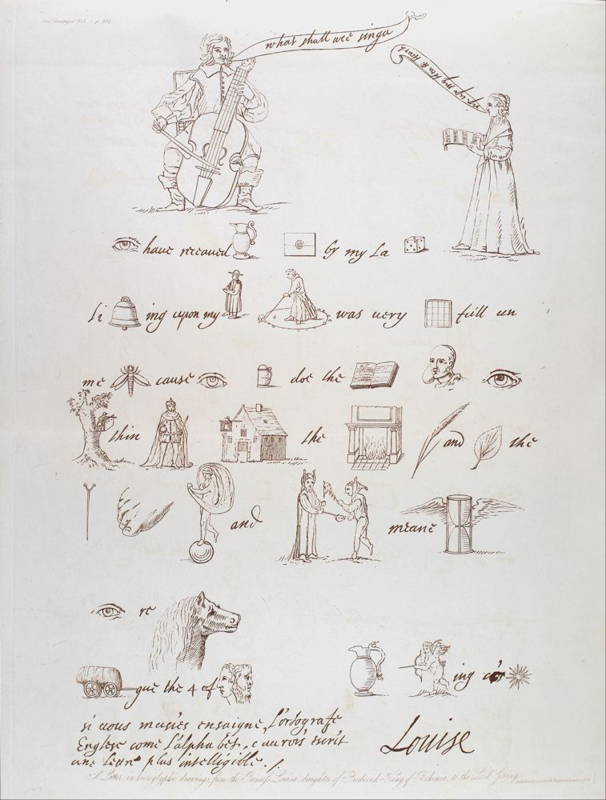 what shall wee singe
have receaued by my La
li ing upon my was uery full un
me cause doe the
thin the and the
and meane
re
gue the 4 of
ing
si uous musiés ensaigne, l'ortografe
Englese come l'alphabet, c auroÿs escrit
une plus intelligible.
Louise
A Letter in hieroglyphic drawings from the Princess Louisa, daughter of Frederick King of Bohemia, to the